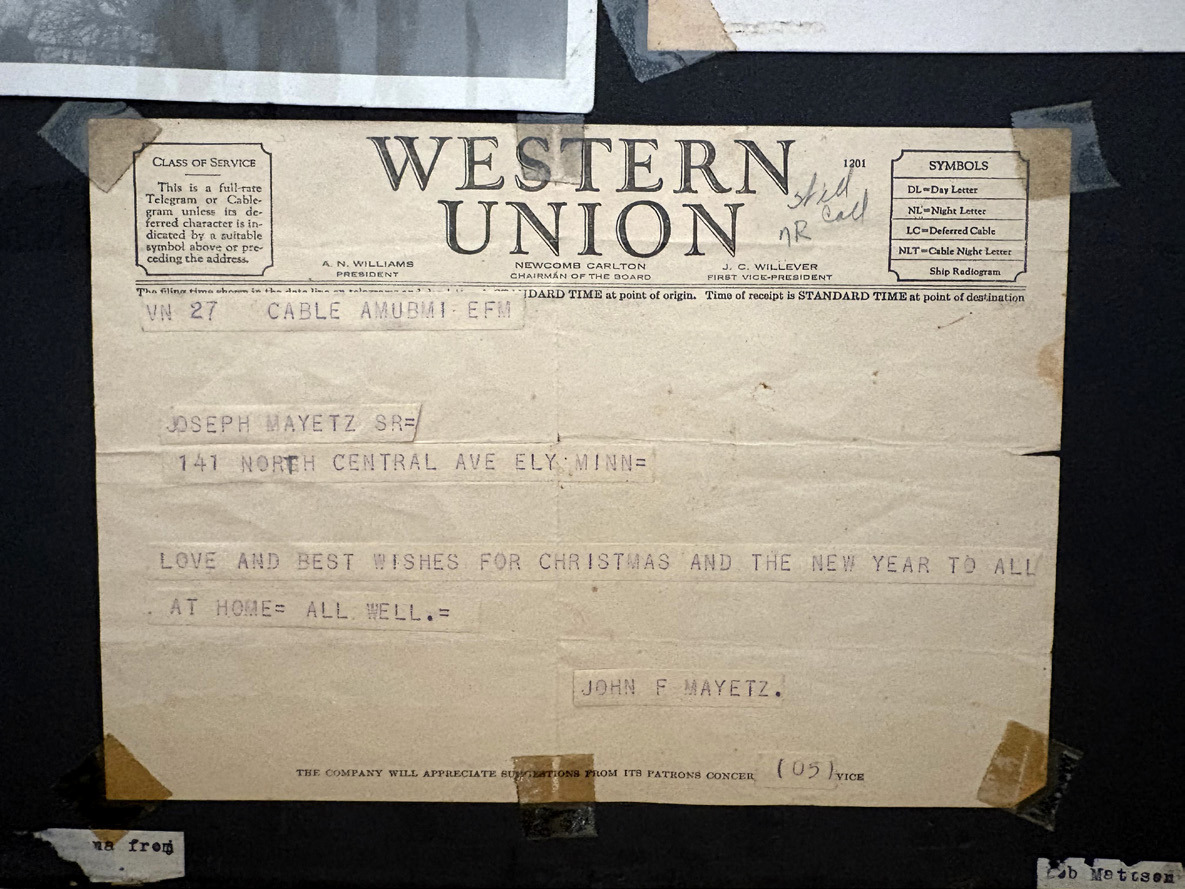 WESTERN
UNION
1201
CLASS OF SERVICE
This is a full-rate
Telegram or Cable-
gram unless its de-
ferred character is in-
dicated by a suitable
symbol above or pre-
ceding the address.
A. N. WILLIAMS
PRESIDENT
NEWCOMB CARLTON
CHAIRMAN OF THE BOARD
J. C. WILLEVER
FIRST VICE-PRESIDENT
SYMBOLS
DL=Day Letter
NL=Night Letter
LC=Deferred Cable
NLT=Cable Night Letter
Ship Radiogram
Call
NR
The filing time shown in the date line on telegrams and DARD TIME at point of origin. Time of receipt is STANDARD TIME at point of destination
VN 27 CABLE AMUBMI EFM
JOSEPH MAYETZ SR=
141 NORTH CENTRAL AVE ELY MINN=
LOVE AND BEST WISHES FOR CHRISTMAS AND THE NEW YEAR TO ALL
AT HOME= ALL WELL.=
JOHN F MAYETZ.
THE COMPANY WILL APPRECIATE SUGGESTIONS FROM ITS PATRONS CONCER (05) VICE
from
Mattson